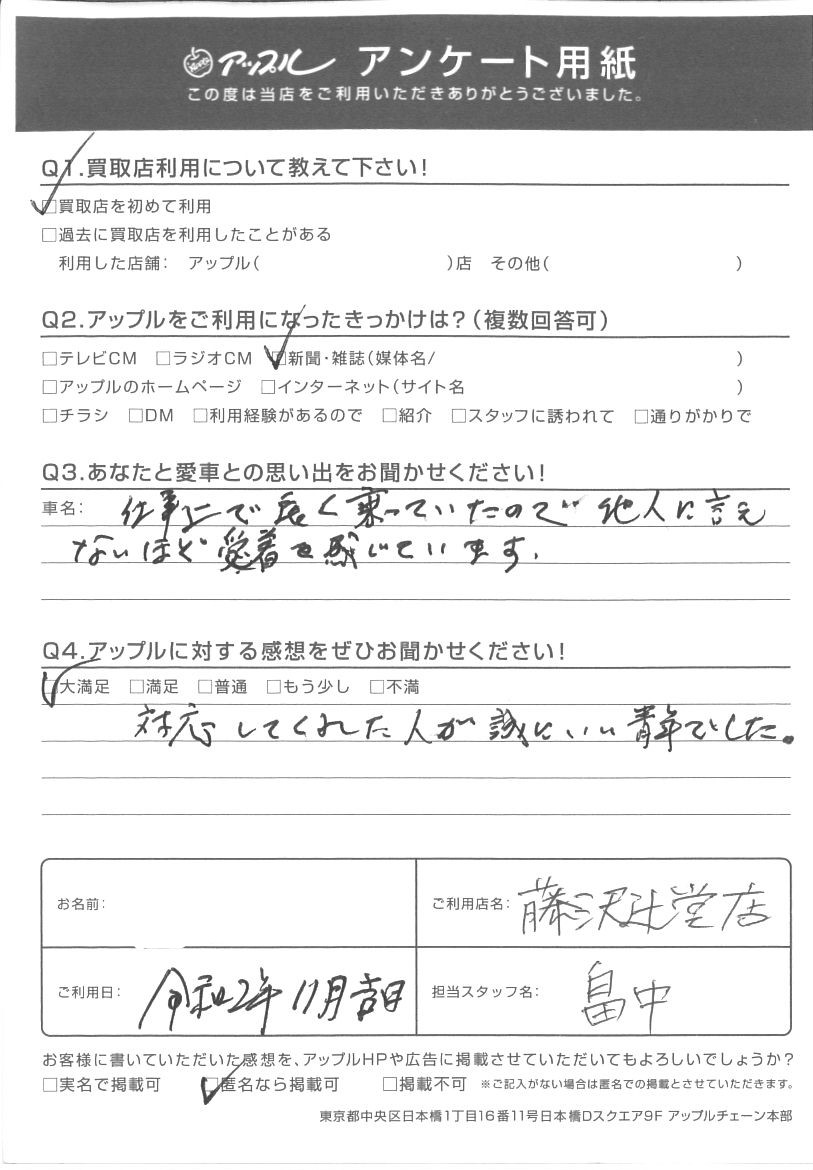 アップル アンケート用紙
この度は当店をご利用いただきありがとうございました。
Q1.買取店利用について教えて下さい!
□買取店を初めて利用
□過去に買取店を利用したことがある
利用した店舗: アップル( )店 その他( )
Q2.アップルをご利用になったきっかけは?(複数回答可)
□テレビCM □ラジオCM □新聞・雑誌(媒体名/ )
□アップルのホームページ □インターネット(サイト名 )
□チラシ □DM □利用経験があるので □紹介 □スタッフに誘われて □通りがかりで
Q3.あなたと愛車との思い出をお聞かせください!
車名: 仕事上で良く乗っていたので他人に言え
ないほど愛着を感じています。
Q4.アップルに対する感想をぜひお聞かせください!
□大満足 □満足 □普通 □もう少し □不満
対応してくれた人が誠にいい青年でした。
お名前:
ご利用店名: 藤沢辻堂店
ご利用日: 令和2年11月吉日
担当スタッフ名: 畠中
お客様に書いていただいた感想を、アップルHPや広告に掲載させていただいてもよろしいでしょうか?
□実名で掲載可 □匿名なら掲載可 □掲載不可 ※ご記入がない場合は匿名での掲載とさせていただきます。
東京都中央区日本橋1丁目16番11号日本橋Dスクエア9F アップルチェーン本部